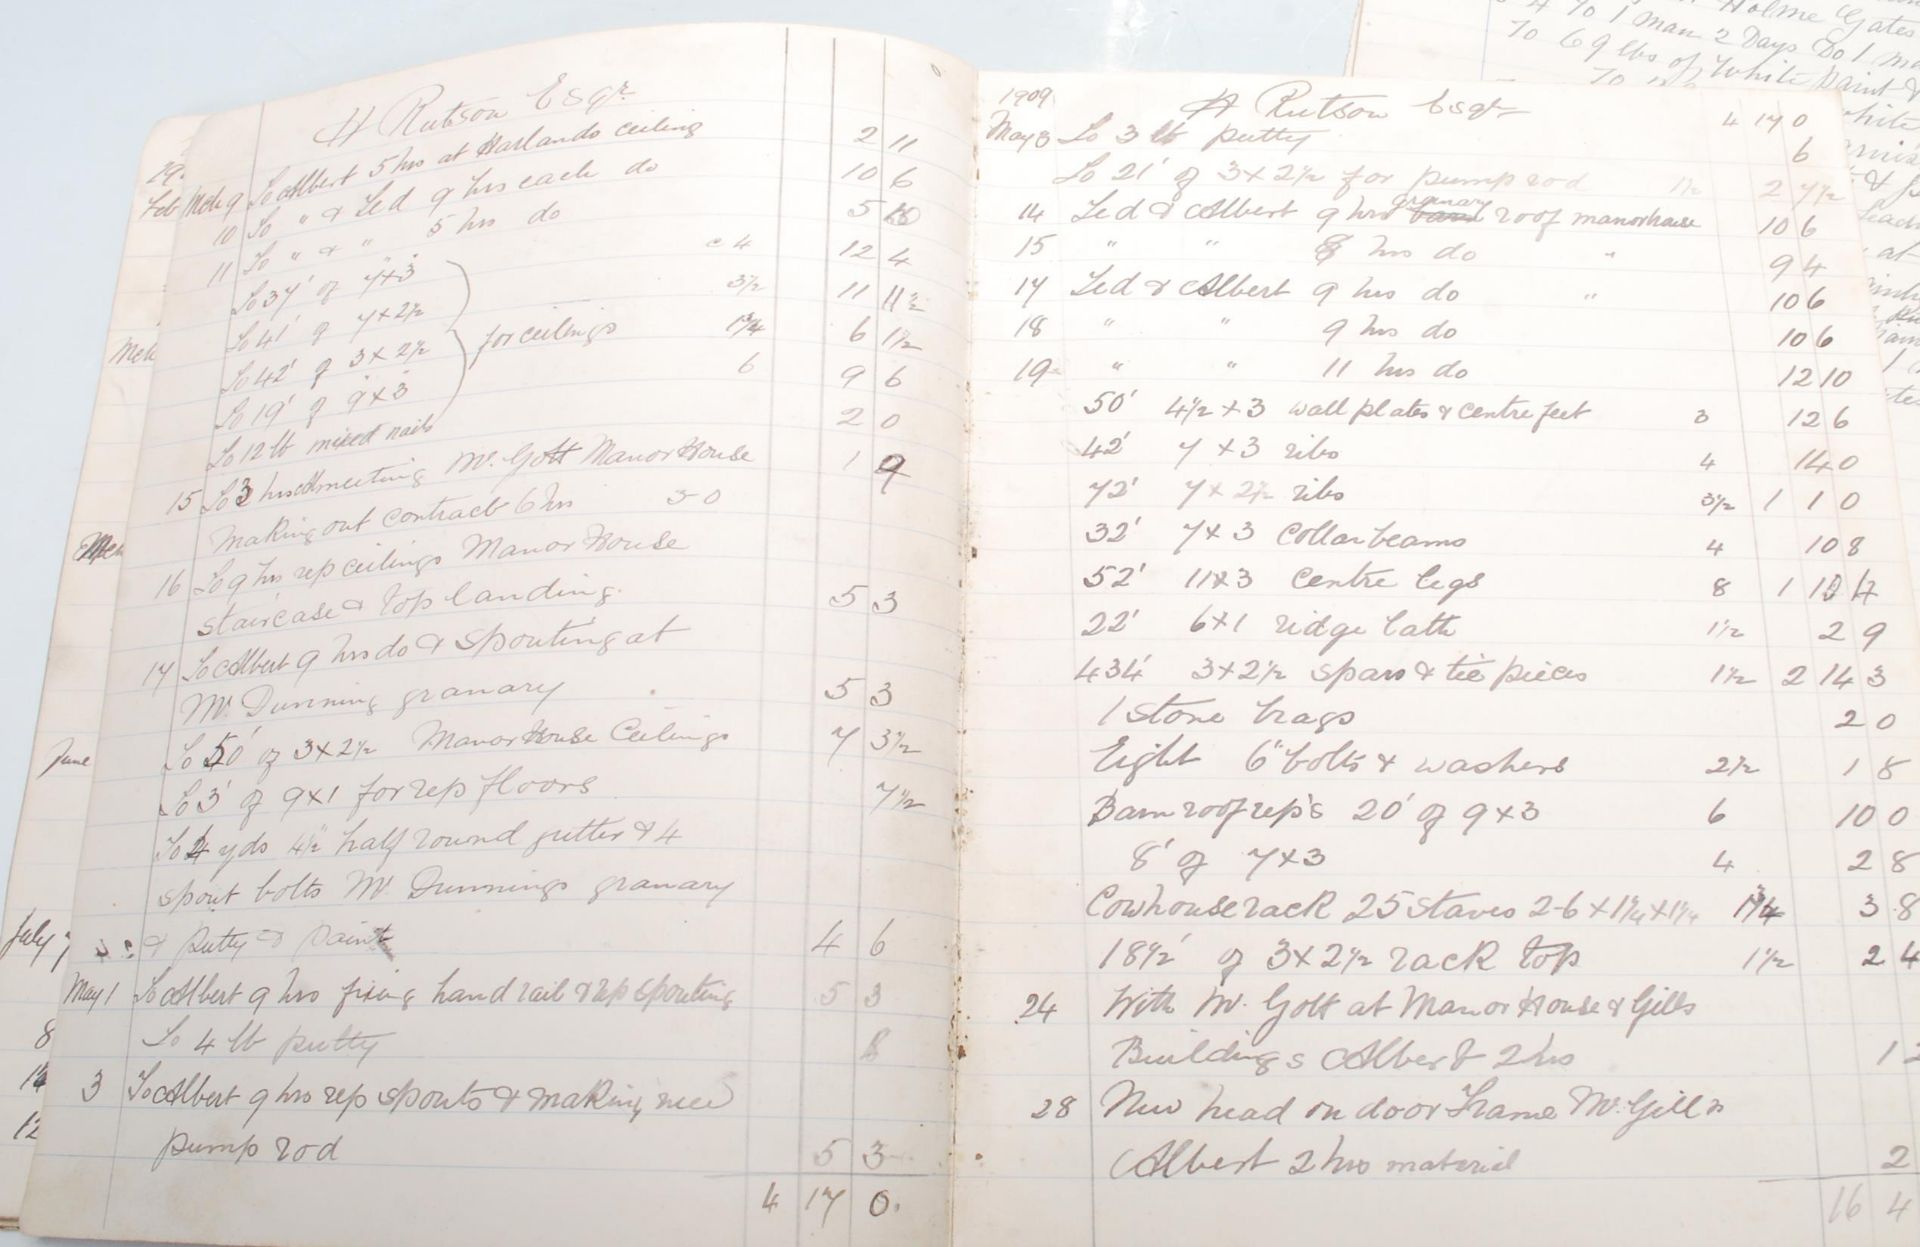 H Rutson Esqr
Mch 9 To Albert 5 hrs at Harlands ceiling 2 11
10 To " & Ted 9 hrs each do 10 6
11 To " & " 5 hrs do 5
To 37' of 7 x 3 c 4 12 4
To 41' of 7 x 2½ 3½ 11 11½
To 42' of 3 x 2½ for ceilings 1¾ 6 1½
To 19' of 9 x 3 6 9 6
To 12 lb mixed nails 2 0
15 To 3 hrs meeting Mr. Gott Manor House 1 9
Making out contract 6 hrs 3 0
16 To 9 hrs rep ceilings Manor House
staircase & top landing. 5 3
17 To Albert 9 hrs do & spouting at
Mr. Dunning granary 5 3
To 50' of 3 x 2½ Manor House Ceilings 7 3½
To 3' of 9 x 1 for rep floors 7½
To 4 yds 4½" half round gutter & 4
spout bolts Mr. Dunnings granary
& putty & paint 4 6
May 1 To Albert 9 hrs fixing hand rail & rep spouting 5 3
To 4 lb putty 8
3 To Albert 9 hrs rep spouts & making new
pump rod 5 3
4 17 0.
Feb
Mch
Mch
June
July 7
8
14
12
1909 H Rutson Esqr 4 17 0
May 3 To 3 lb putty 6
To 21' of 3 x 2½ for pump rod 1½ 2 7½
14 Ted & Albert 9 hrs granary roof manor house 10 6
15 " " 8 hrs do " 9 4
17 Ted & Albert 9 hrs do " 10 6
18 " " 9 hrs do 10 6
19 " " 11 hrs do 12 10
50' 4½ x 3 wall plates & centre feet 3 12 6
42' 7 x 3 ribs 4 14 0
72' 7 x 2½ ribs 3½ 1 1 0
32' 7 x 3 Collar beams 4 10 8
52' 11 x 3 Centre legs 8 1
22' 6 x 1 ridge lath 1½ 2 9
434' 3 x 2½ spars & tie pieces 1½ 2 14 3
1 stone brags 2 0
Eight 6" bolts & washers 2½ 1 8
Barn roof rep's 20' of 9 x 3 6 10 0
8' of 7 x 3 4 2 8
Cowhouse rack 25 staves 2-6 x 1¼ x 1¼ 1¾ 3 8
18½' of 3 x 2½ rack top 1½ 2 4
24 With Mr. Gott at Manor House & Gills
Buildings Albert 2 hrs 1 2
28 New head on door frame Mr. Gills
Albert 2 hrs material 2
16 4
Holme Gates
4 To 1 man 2 Days Do 1
To 69 lbs of White paint &